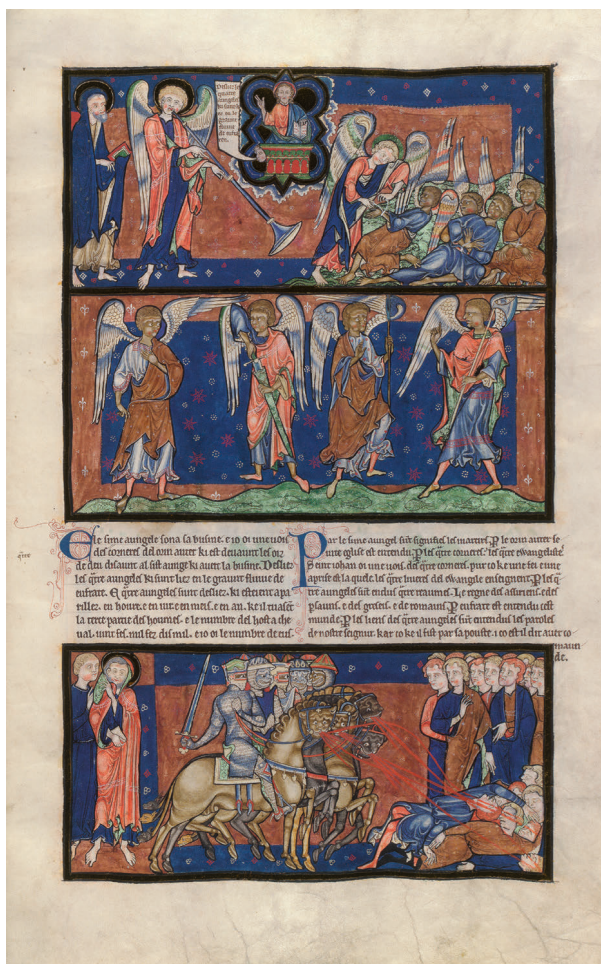 Desliez les
quatre
aungeles
en le
graunt
flume
de eufra
E le sime aungele sona sa busine. e io oi une vois
des corneres del orin auter ki est devaunt les oiz
de deu disaunt al sist aungele ki aveit la busine. Desliez
les qtre aungeles ki sunt liez en le graunt flume de
eufrate. E qtre aungeles sunt desliez. ki esteient apa
rillez. en houre. e en iur. e en meis. e en an. ke il
la terce partie des houmes. e le numbre del host a che
val. vint feiz mil feiz dis mil. e io oi le numbre de eus
qtre
Par le sime aungel sunt signifies les martirs. P le orin auter se
inte eglise est entendu. P les qtre corneres. les qtre ewangelistes
Seint iohan oi une vois. des qtre corneres. pur co ke une fei eune
aprise est la quele. les qtre liveres del ewangile enseignent. P les q
tre aungeles sunt entendus qtre reaumes. Le regne des assiriens. des
psauns. e des greceis. e de romains. P eufrate est entendu cest
munde. P les liens des qtre aungeles sunt entendus les paroles
de nostre seignur. kar co ke il fist par sa pouste. co est il dit auer co
maun
de.